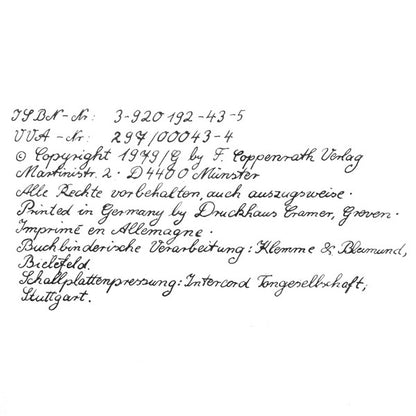 ISBN-Nr: 3-920 192-43-5
VVA-Nr: 297/00043-4
© Copyright 1979/G by F. Coppenrath Verlag
Martinistr. 2 · D4400 Münster
Alle Rechte vorbehalten, auch auszugsweise ·
Printed in Germany by Druckhaus Cramer, Greven ·
Imprimé en Allemagne ·
Buchbinderische Verarbeitung: Klemme & Bleimund,
Bielefeld.
Schallplattenpressung: Intercord Tongesellschaft,
Stuttgart.